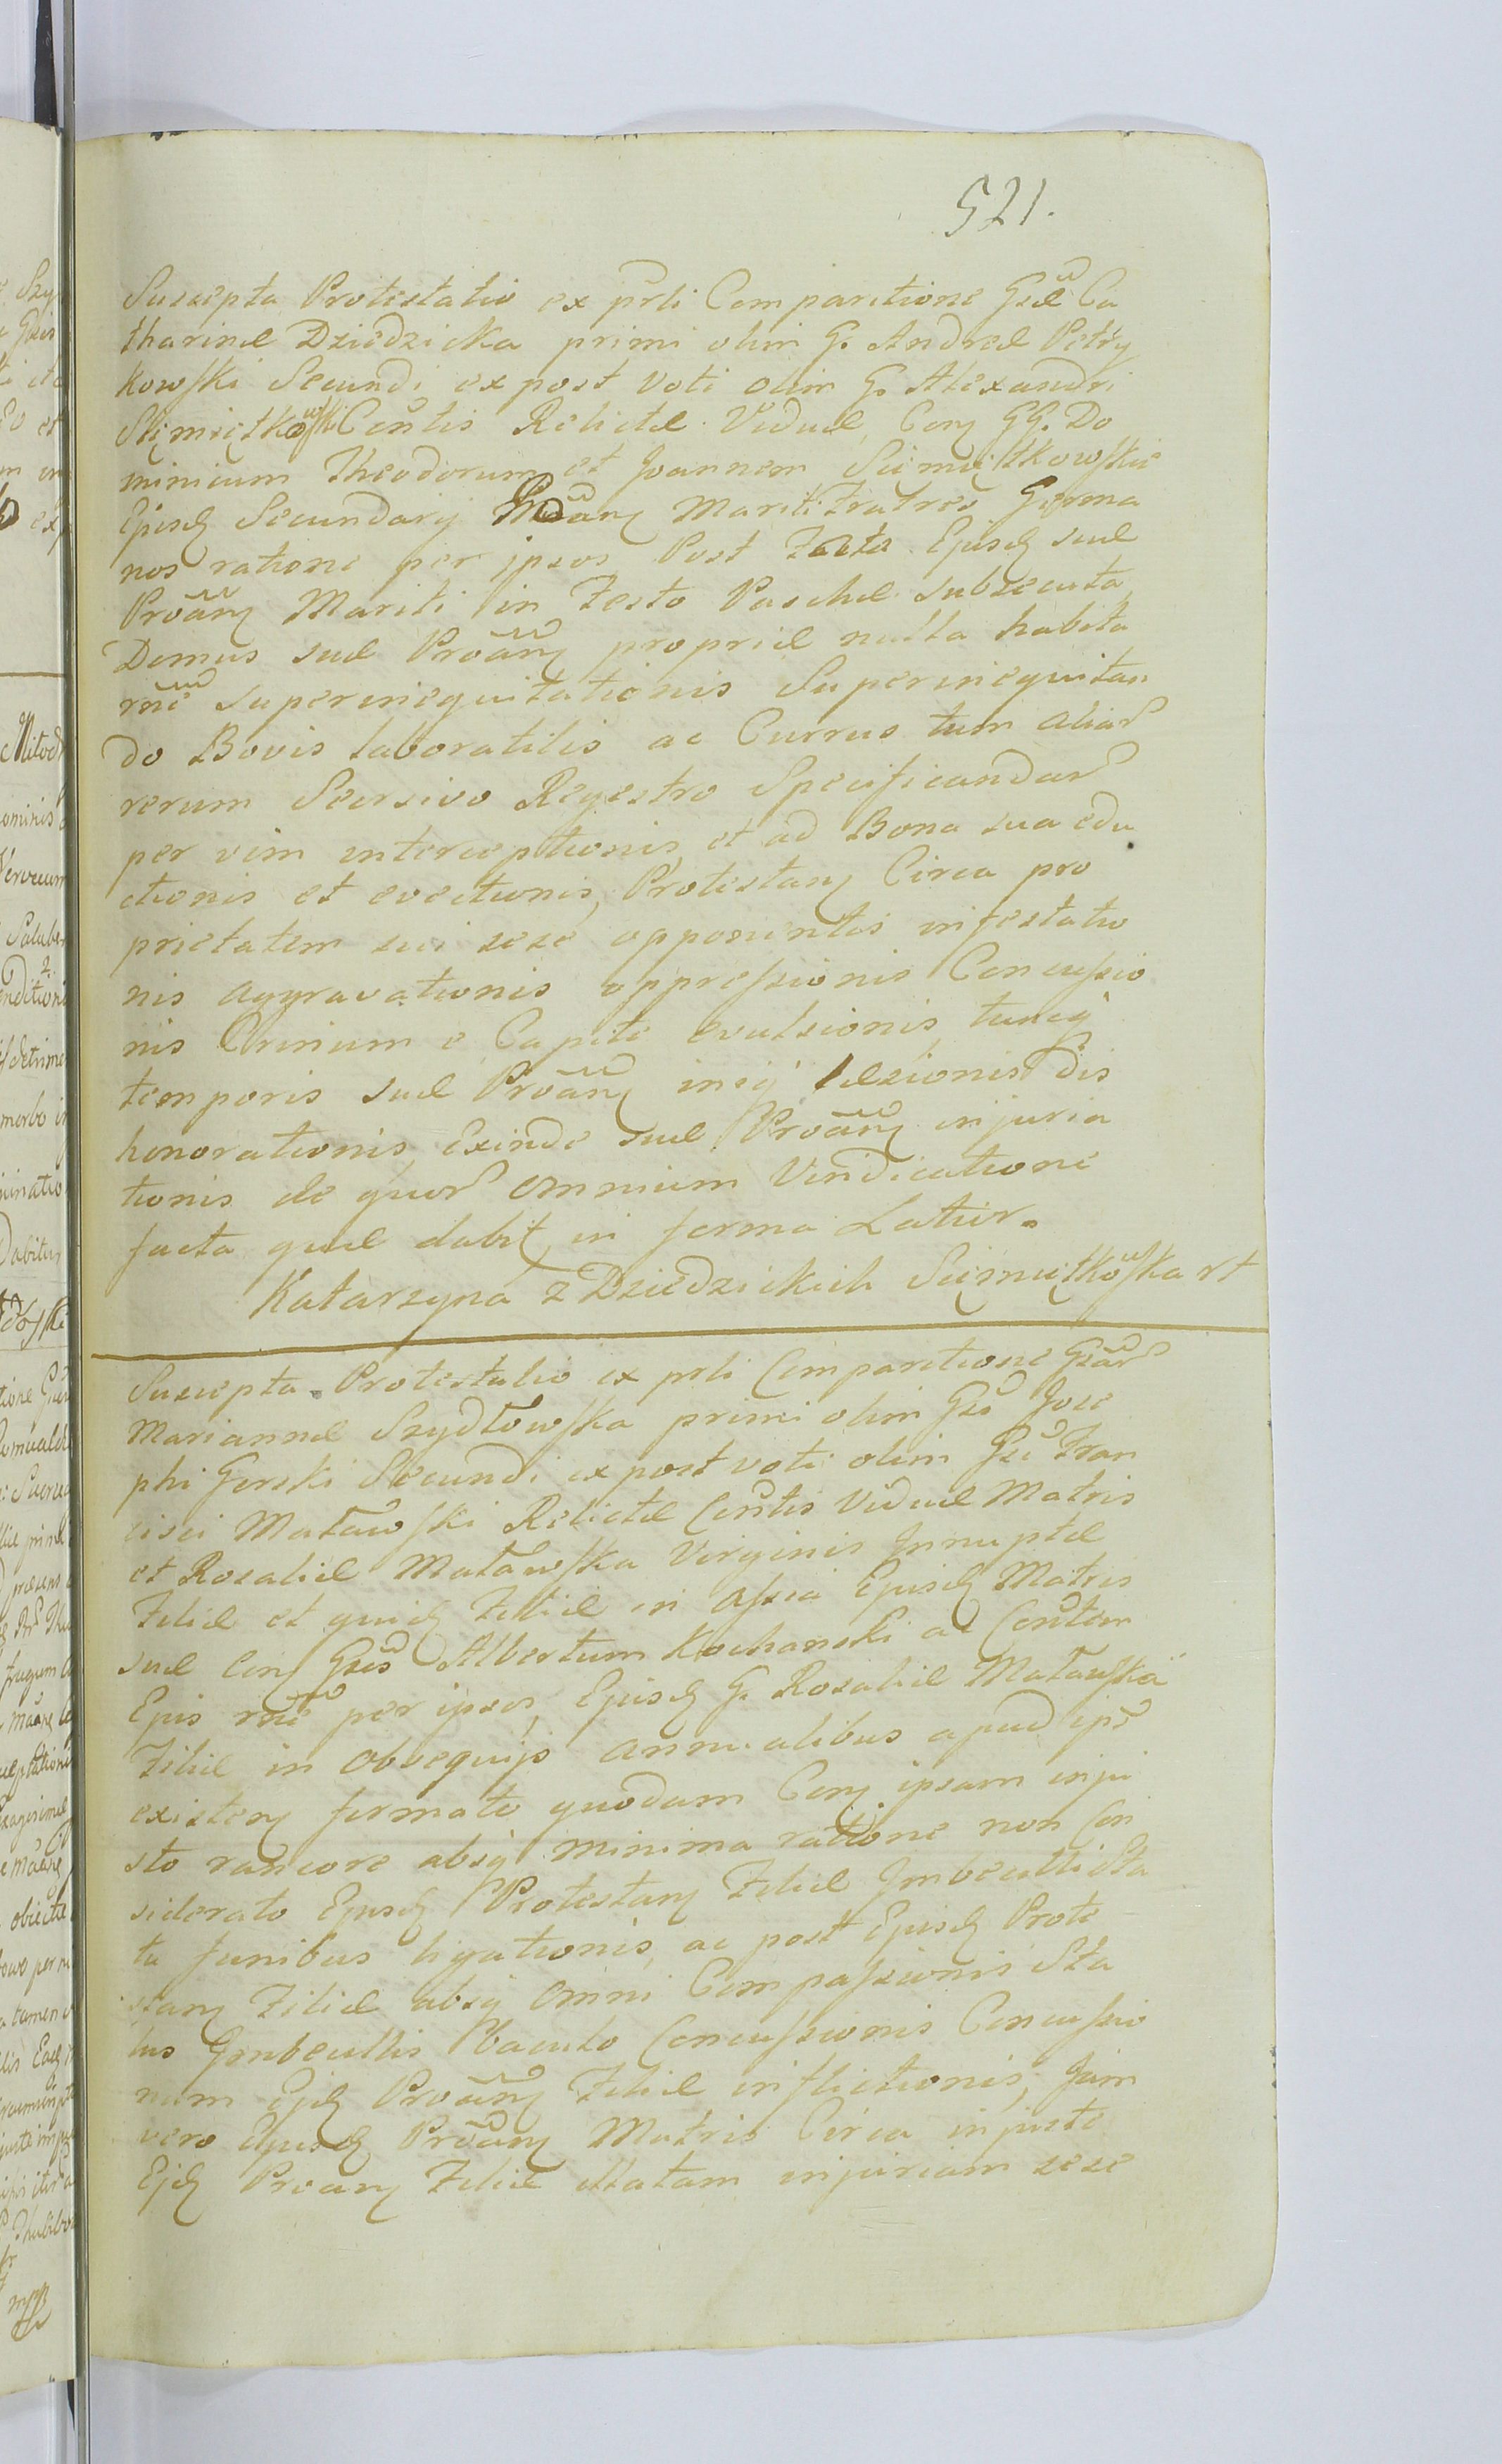 521.
Suscepta Protestatio ex prli Comparitione Gsae Ca
tharinae Dziedzicka primi olim G. Andreae Petry
kowski Secundi ex post voti olim G. Alexandri
Contis Relictae Viduae, Con GG. Do
minicum Theodorum et Joannem
Ejusd Secundarij Mariti Fratres Germa
nos ratione per ipsos Post Fata Ejusd suae
Proan Mariti in Festo Paschae subsecuta
Domus suae Proan propriae nulla habita
rne superinequitationis Superinequitan
do Bovis laboratilis ac Currus tum aliar
rerum Seorsivo Regestro Specificandar
per vim interceptionis, et ad Bona sua edu
ctionis et evectionis, Protestan Circa pro
prietatem sui sese opponentis infestatio
nis aggravationis oppressionis Concussio
nis Crinium e Capite evulsionis, tuncq
temporis suae Proan insq laesionis dis
honorationis, Exinde suae Proan injuria
tionis de quor omnium Vindicatione
facta quae dabit in forma Latior.
Katarzyna z Dziedzickich
Suscepta Protestatio ex prli Comparitione Gsar
Mariannae Szydłowska primi olim Gsi Jose
phi Gorski Secundi ex post voti olim Gsi Fran
cisci Matawski Relictae Contis Viduae Matris
et Rosaliae Matawska Virginis Innuptae
Filiae et quid Filiae in Assia Ejusd Matris
suae Con Gsos Albertum Kochanski ac Contem
Ejus rne per ipsos, Ejusd G. Rosaliae Matawska
Filiae in obsequijs annualibus apud ips
existen formato quodam Con ipsam inju
sto rancore absq minima ratione non Con
siderato Ejusd Protestan Filiae Imbecilli Sta
tu funibus ligationis, ac post Ejusd Prote
stan Filiae absq omni Compassionis Sta
tus Imbecillis baculo Concussionis Concussio
num Ejd Proan Filiae inflictionis, Jam
vero Ejusd Proan Matris Circa injuste
Ejd Proan Filiae illatam injuriam sese